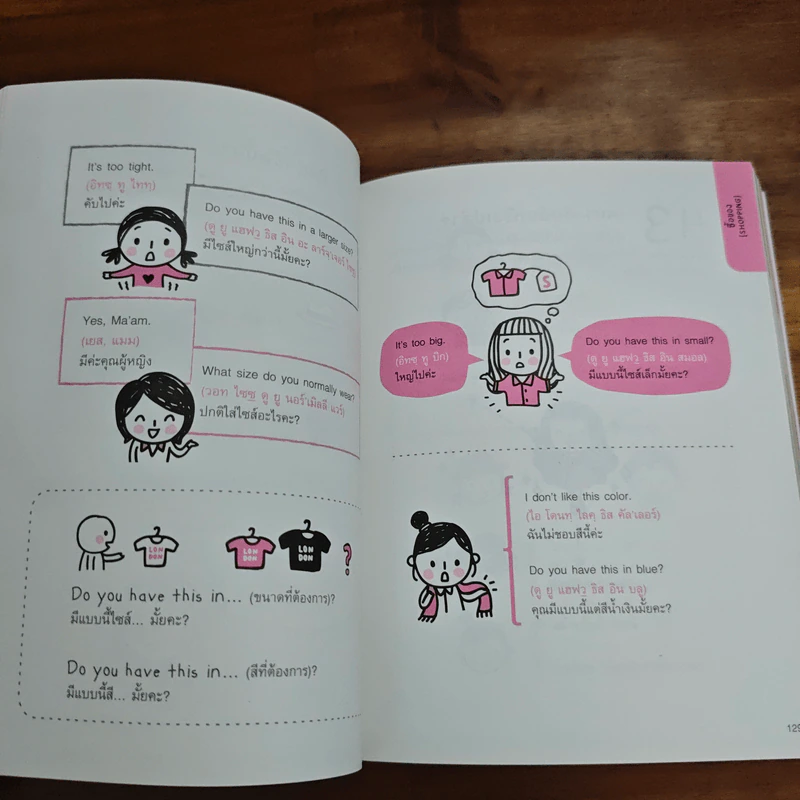 It's too tight.
(อิทซฺ ทู ไททฺ)
คับไปค่ะ
Do you have this in a larger size?
(ดู ยู แฮฟวฺ ธิส อิน อะ ลาร์จฺเจอร์ ไซซฺ)
มีไซส์ใหญ่กว่านี้มั้ยคะ?
Yes, Ma'am.
(เยส, แมม)
มีค่ะคุณผู้หญิง
What size do you normally wear?
(วอท ไซซฺ ดู ยู นอร์'เมิลลี แวร์)
ปกติใส่ไซส์อะไรคะ?
LON
DON
LON
DON
LON
DON
?
Do you have this in... (ขนาดที่ต้องการ)?
มีแบบนี้ไซส์... มั้ยคะ?
Do you have this in... (สีที่ต้องการ)?
มีแบบนี้สี... มั้ยคะ?
ซื้อของ
[SHOPPING]
S
It's too big.
(อิทซฺ ทู บิก)
ใหญ่ไปค่ะ
Do you have this in small?
(ดู ยู แฮฟวฺ ธิส อิน สมอล)
มีแบบนี้ไซส์เล็กมั้ยคะ?
I don't like this color.
(ไอ โดนทฺ ไลคฺ ธิส คัล'เลอร์)
ฉันไม่ชอบสีนี้ค่ะ
Do you have this in blue?
(ดู ยู แฮฟวฺ ธิส อิน บลู)
คุณมีแบบนี้แต่สีน้ำเงินมั้ยคะ?
129